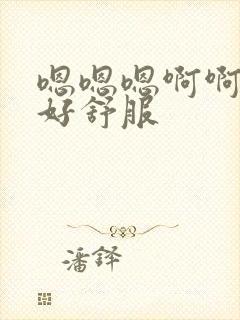 嗯嗯嗯啊啊
好舒服
潘铎